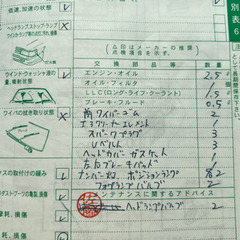 低速、加速の状態
別表6
ヘッドランプ、ストップランプ
ワイパの拭き取り状態
ウインド・ウォッシャ液の
噴射状態
(△印はメーカーの推奨
点検項目です)
交換部品等
数
エンジン・オイル 2.5
オイル・フィルタ 1
LLC(ロング・ライフ・クーラント) 1.5
ブレーキ・フルード 0.5
前ワイパーゴム 2
エアクリーナーエレメント 1
スパークプラグ 3
Vベルト 3
ヘッドカバーガスケット 1
左右ブレーキパット
ナンバー灯、ポジションランプ 各2
フォグランプバルブ 2
メンテナンスに関するアドバイス
ヘッドランプバルブ 2
ナンスの取付けの緩み
摩耗、損傷
損傷